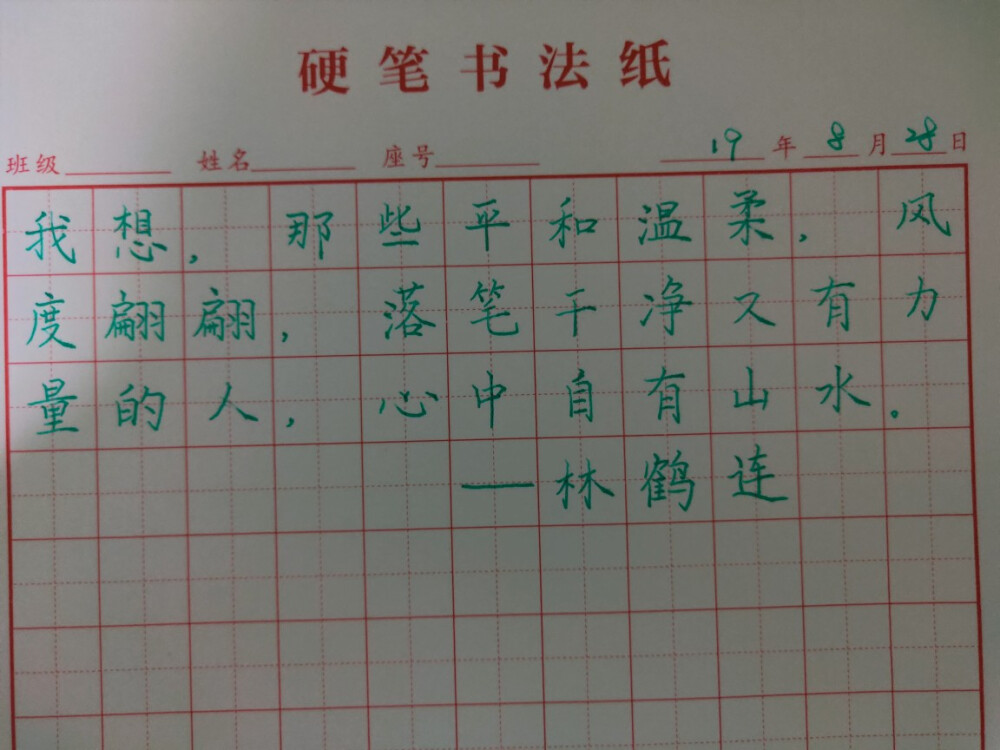 硬笔书法纸
班级 姓名 座号 19年8月28日
我想，那些平和温柔，风
度翩翩，落笔干净又有力
量的人，心中自有山水。
——林鹤连